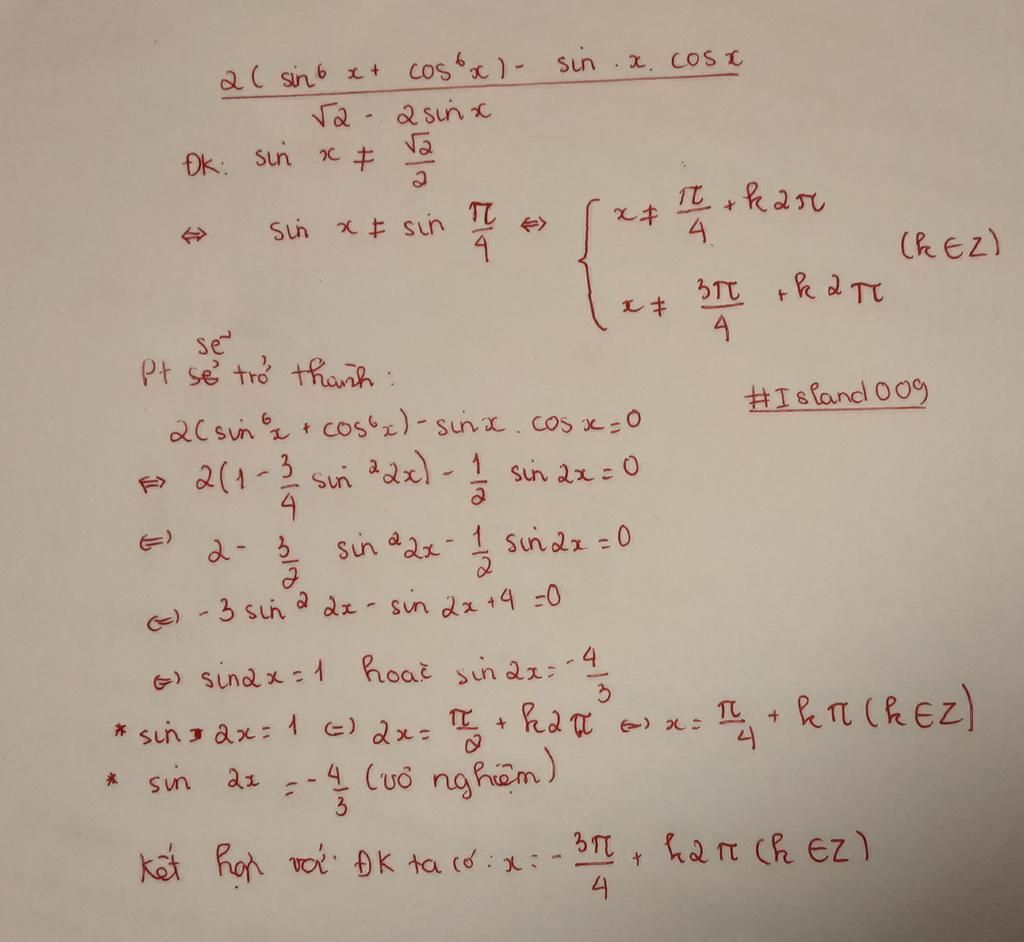 2(sin⁶ x + cos⁶x) - sin . x. cos x
√2 - 2sin x
ĐK: sin x ≠ √2/2
⇔ sin x ≠ sin π/4 ⇔ { x ≠ π/4 + k2π
x ≠ 3π/4 + k2π (k ∈ Z)
sẽ
Pt sẻ trở thành:
#Island009
2(sin⁶x + cos⁶x) - sin x . cos x = 0
⇔ 2(1 - 3/4 sin²2x) - 1/2 sin 2x = 0
⇔ 2 - 3/2 sin²2x - 1/2 sin 2x = 0
⇔ -3 sin² 2x - sin 2x + 4 = 0
⇔ sin2x = 1 hoặc sin 2x = -4/3
* sin 2x = 1 ⇔ 2x = π/2 + k2π ⇔ x = π/4 + kπ (k ∈ Z)
* sin 2x = -4/3 (vô nghiệm)
Kết hợp với ĐK ta có: x = -3π/4 + k2π (k ∈ Z)